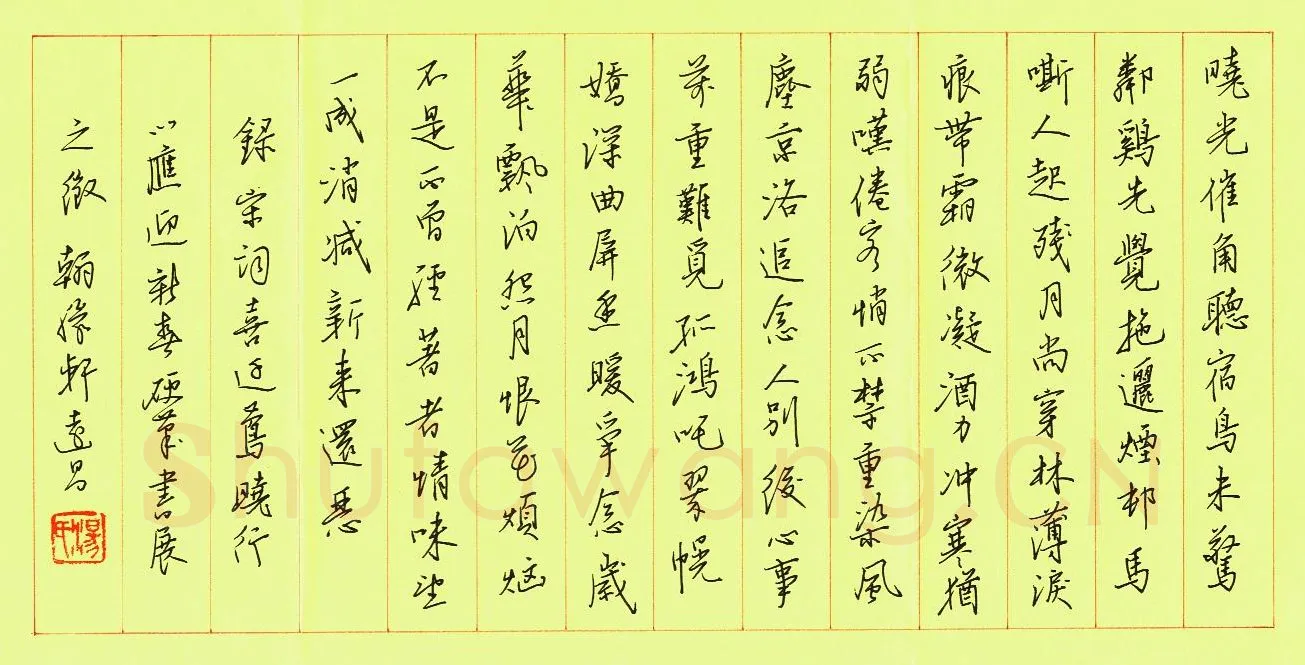 曉光催角聽宿鳥未驚
鄰鷄先覺拖邐煙邨馬
嘶人起殘月尚穿林薄淚
痕帶霜微凝酒力冲寒猶
弱嘆倦客悄不禁重染風
塵京洛追念人別後心事
萬重難覓孤鴻吒翠幌
嬌深曲屏香暖爭念歲
華飄泊怨月恨花煩惱
不是不曾經著者情味望
一成消減新來還惡
錄宋詞喜迁鶯曉行
以應迎新春硬筆書展
之徵 翰緣軒遠昌
Shufawang.CN